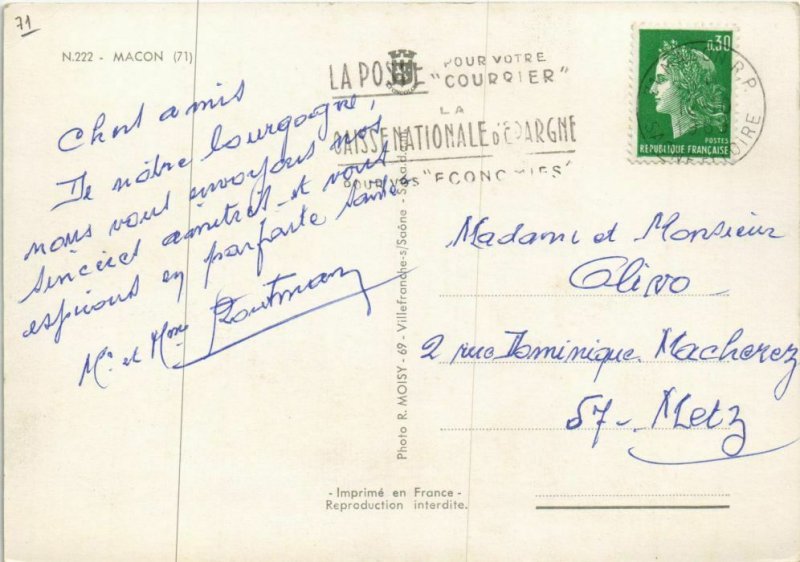 71
N.222 - MACON (71)
Chers amis
De nôtre bourgogne,
nous vous envoyons nos
sincères amitiés et vous
espérons en parfaite santé.
Mr. et Mme
LA POSTE POUR VOTRE "COURRIER"
LA
CAISSE NATIONALE d'EPARGNE
POUR VOS "ECONOMIES"
0,30
POSTES
REPUBLIQUE FRANÇAISE
R.P.
Madame et Monsieur
Olivo
2 rue Dominique Macherez
57 - Metz
Photo R. MOISY - 69 - Villefranche-s/Saône -
- Imprimé en France -
Reproduction interdite.